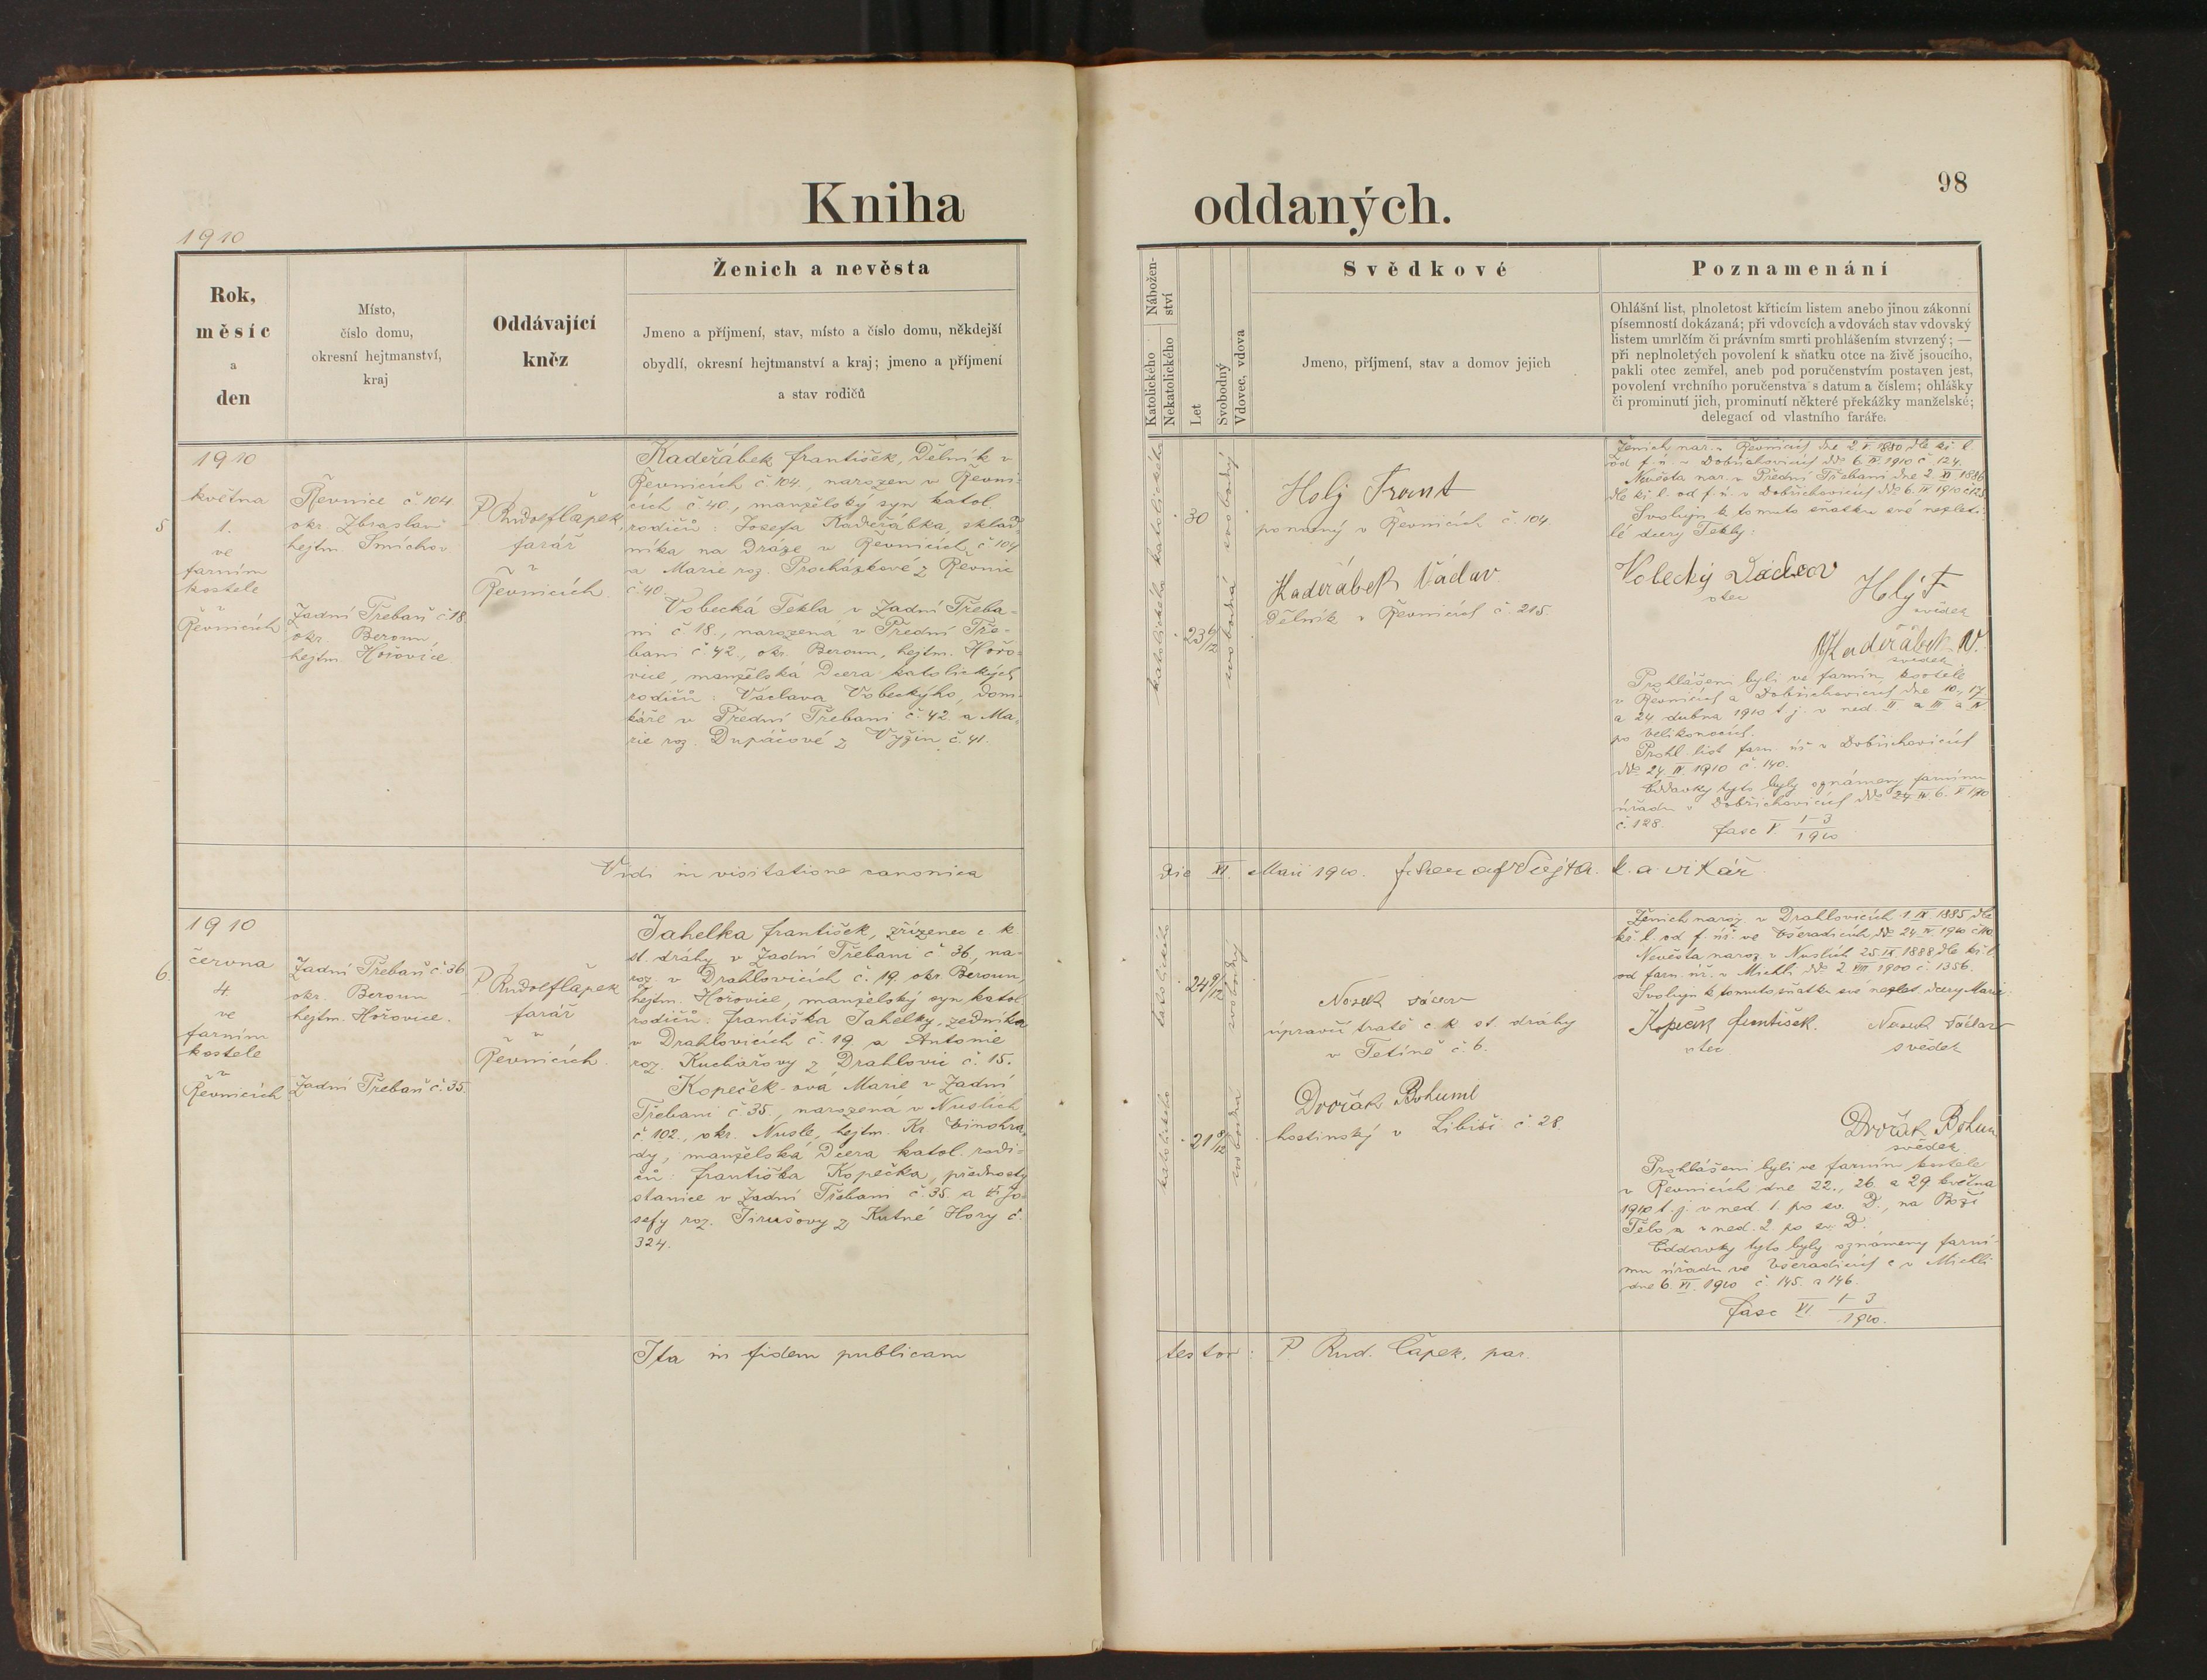 Kniha
oddaných.
98
1910
Rok,
měsíc
a
den
Místo,
číslo domu,
okresní hejtmanství,
kraj
Oddávající
kněz
Ženich a nevěsta
Jmeno a příjmení, stav, místo a číslo domu, někdejší
obydlí, okresní hejtmanství a kraj; jmeno a příjmení
a stav rodičů
Nábožen-
ství
Katolického
Nekatolického
Let
Svobodný
Vdovec, vdova
Svědkové
Jmeno, příjmení, stav a domov jejich
Poznamenání
Ohlášní list, plnoletost křticím listem anebo jinou zákonní
písemností dokázaná; při vdovcích a vdovách stav vdovský
listem umrlčím či právním smrti prohlášením stvrzený; —
při neplnoletých povolení k sňatku otce na živě jsoucího,
pakli otec zemřel, aneb pod poručenstvím postaven jest,
povolení vrchního poručenstva s datum a číslem; ohlášky
či prominutí jich, prominutí některé překážky manželské;
delegací od vlastního faráře.
5
1910
května
1.
ve
farním
kostele
v
Řevnicích
Řevnice č 104
okr. Zbraslav
hejtm. Smíchov
Zadní Třebaň č.18
okr. Beroun,
hejtm. Hořovice.
P. Rudolf Čapek,
farář
v
Řevnicích.
Kadeřábek František, dělník v
Řevnicích č. 104, narozen v Řevni-
cích č 40, manželský syn katol.
rodičů: Josefa Kadeřábka, sklad-
níka na dráze v Řevnicích č 104
a Marie roz. Procházkové z Řevnic
č. 40
Vobecká Tekla v Zadní Třeba-
ni č 18., narozená v Přední Tře-
bani č 42., okr. Beroun, hejtm. Hořo-
vice, manželská dcera katolických
rodičů: Václava Vobeckýho, dom-
káře v Přední Třebani č. 42 a Ma-
rie roz. Dupáčové z Vyžin č. 41.
katolického katolického
30
23 6/12
svobodná svobodný
Holý Frant
ponocný v Řevnicích č. 104.
Kadeřábek Václav
dělník v Řevnicích č. 215.
Ženich nar. v Řevnicích dne 2. V. 1880 dle kř. l.
od f. ú. v Dobřichovicích ddo 6. IV. 1910 č 124.
Nevěsta nar. v Přední Třebani dne 2. XI. 1886
dle kř. l. od f. ú. v Dobřichovicích ddo 6. IV 1910 č 125
Svoluji k tomuto sňatku své nezleti-
lé dcery Tekly:
Vobecký Václav
otec
Holý F
svědek
Kadeřábek V.
svědek
Prohlášeni byli ve farním kostele
v Řevnicích a Dobřichovicích dne 10., 17.
a 24 dubna 1910 t. j. v ned. II a III a IV
po velikonocích.
Prohl. list farn. úř. v Dobřichovicích
ddo 24 IV 1910 č. 140.
Oddavky tyto byly oznámeny farnímu
úřadu v Dobřichovicích
č. 128.
fasc V. 1-3
1910
Vidi in visitatione canonica
die XI. Maii 1910.
b. a. vikář
6.
1910
června
4.
ve
farním
kostele
v
Řevnicích
Zadní Třebaň č. 36
okr. Beroun
hejtm. Hořovice.
Zadní Třebaň č. 35.
P. Rudolf Čapek
farář
v
Řevnicích.
Jahelka František, zřízenec c. k
st. dráhy v Zadní Třebani č 36, na-
roz. v Drahlovicích č. 19. okr. Beroun,
hejtm. Hořovice, manželský syn katol.
rodičů: Františka Jahelky, zedníka
v Drahlovicích č. 19 a Antonie
roz. Kuchařovy z Drahlovic č. 15.
Kopeček-ová Marie v Zadní
Třebani č 35., narozená v Nuslích
č. 102., okr. Nusle, hejtm. Kr. Vinohra-
dy, manželská dcera katol. rodi-
čů: Františka Kopečka, přednosty
stanice v Zadní Třebani č. 35. a Jo-
sefy roz. Jirušovy z Kutné Hory č.
324.
katolického
katolického
24 9/12
21 8/12
svobodný
svobodná
Nosek Václav
úpravčí tratě c k st. dráhy
v Tetíně č. 6.
Dvořák Bohumil
hostinský v Libiši č. 28
Ženich naroz. v Drahlovicích 1. IX 1885 dle
kř. l. od f. úř. ve Všeradicích ddo 24 IV. 1910 č 110
Nevěsta naroz. v Nuslích 25. IX. 1888 dle kř. l.
od farn. úř. v Michli ddo 2 VIII 1900 č. 1356.
Svoluji k tomuto sňatku své nezlet. dcery Marie.
Kopeček František.
otec
Nosek Václav
svědek
Dvořák Bohum
svědek
Prohlášeni byli ve farním kostele
v Řevnicích dne 22., 26. a 29. května
1910 t. j. v ned. 1. po sv. D., na Boží
Tělo a v ned. 2. po sv. D.
Oddavky tyto byly oznámeny farní-
mu úřadu ve Všeradicích a v Michli
dne 6. VI. 1910 č. 145. a 146.
fasc VI 1-3
1910.
Ita in fidem publicam
testor: P. Rud. Čapek, par.